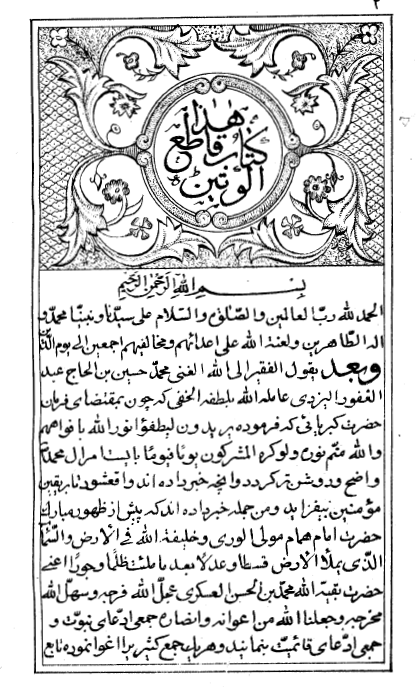 ٢
هذا
كتاب قاطع
الوتين
بسم الله الرحمن الرحيم
الحمد لله رب العالمين والصلوة والسلام على سيدنا ونبينا محمد و
اله الطاهرين ولعنة الله على اعدائهم ومخالفيهم اجمعين الى يوم الدين
وبعد يقول الفقير الى الله الغنى محمد حسين بن الحاج عبد
الغفور اليزدى عامله الله بلطفه الخفى كه چون بمقتضاى فرمان
حضرت كبريائى كه فرموده يريدون ليطفؤا نور الله بافواههم
والله متم نوره ولو كره المشركون يومًا فيومًا بايست امر ال محمد
واضح و روشن تر گردد وانچه خبر داده اند واقع شود تا بر يقين
مؤمنين بيفزايد ومن جمله خبر داده اند كه پيش از ظهور مبارك
حضرت امام همام مولى الورى وخليفة الله فى الارض والسماء
الذى يملأ الارض قسطا وعدلا بعد ما ملئت ظلما وجورا اعنى
حضرت بقية الله محمد بن الحسن العسكرى عجل الله فرجه وسهل الله
مخرجه وجعلنا الله من اعوانه وانصاره جمعى ادعاى نبوت و
جمعى ادعاى قائميت بنمايند وهر يك جمع كثير را اغوا نموده تابع